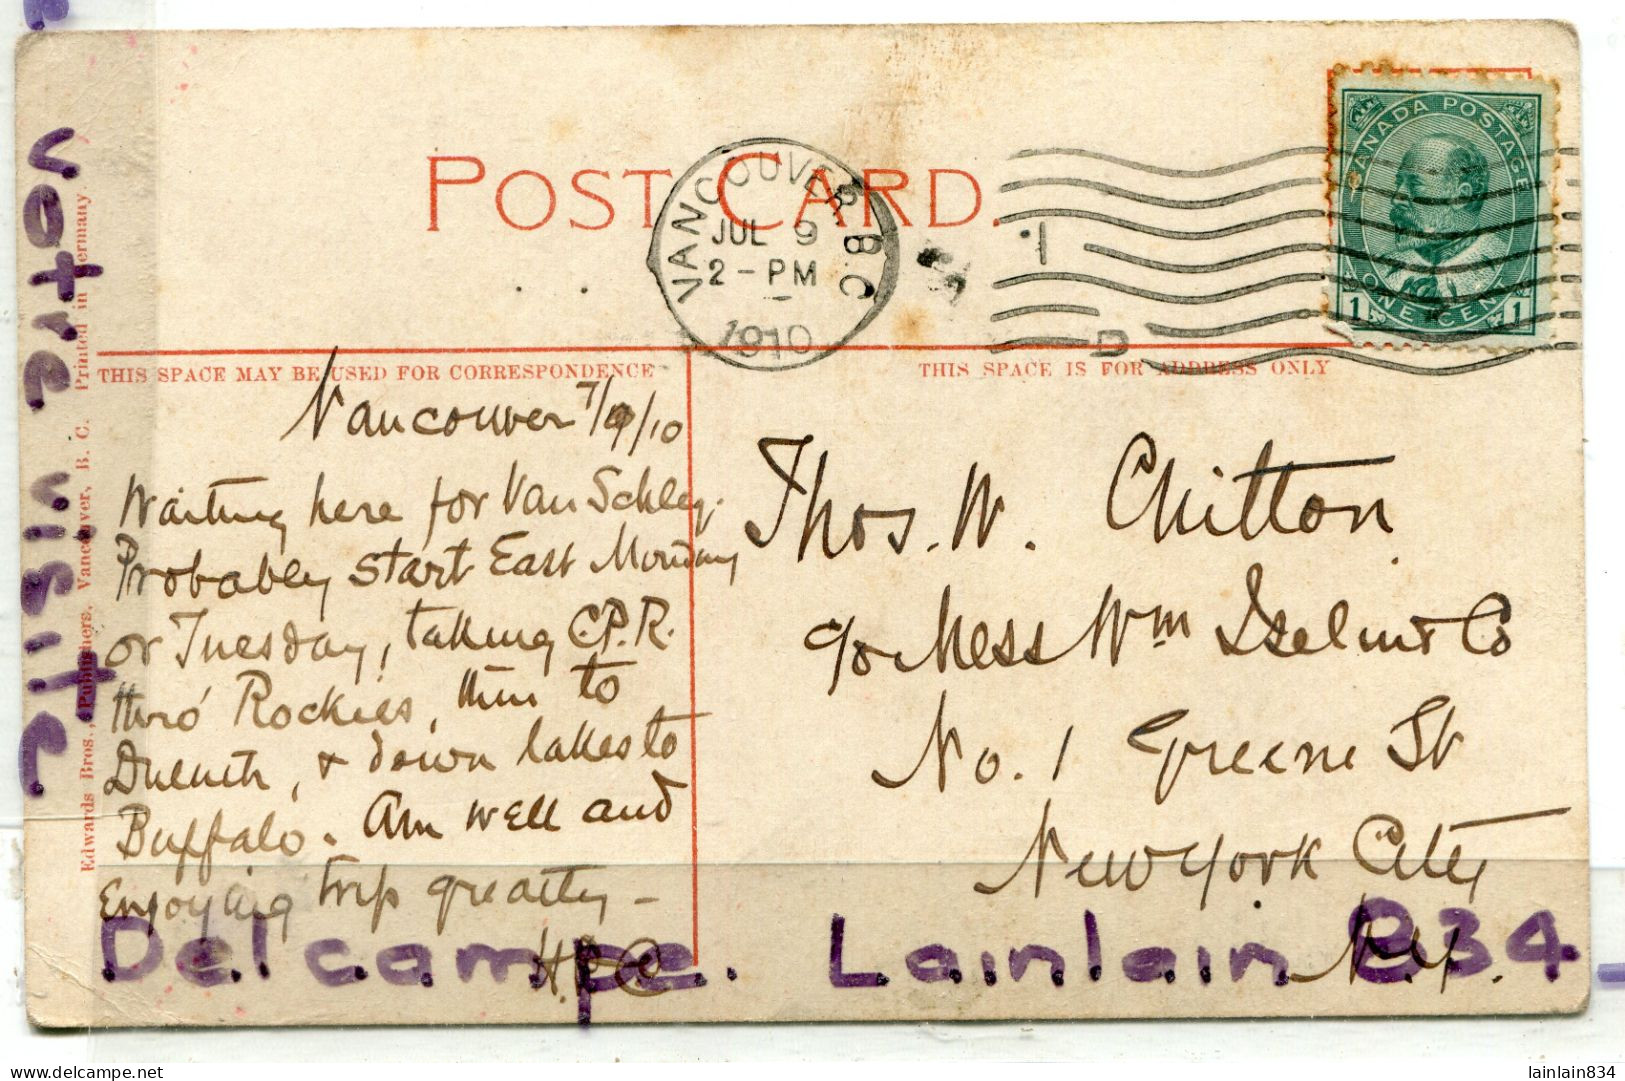 POST CARD.
VANCOUVER B.C
JUL 9
2 - PM
1910
1
D
CANADA POSTAGE
1 ONE CENT 1
THIS SPACE MAY BE USED FOR CORRESPONDENCE
THIS SPACE IS FOR ADDRESS ONLY
Vancouver 7/9/10
Waiting here for Van Schley.
Probabley start East Monday
or Tuesday, taking C.P.R.
thro' Rockies, then to
Duluth, & down lakes to
Buffalo. Am well and
Enjoying trip greatly –
Thos. W. Chitton
c/o Mess Wm Iselin & Co
No. 1 Greene St
New York City
N.Y.
Edwards Bros., Publishers, Vancouver, B. C. Printed in Germany.
votre visite
Delcampe. Lainlain 834
delcampe.net
lainlain834